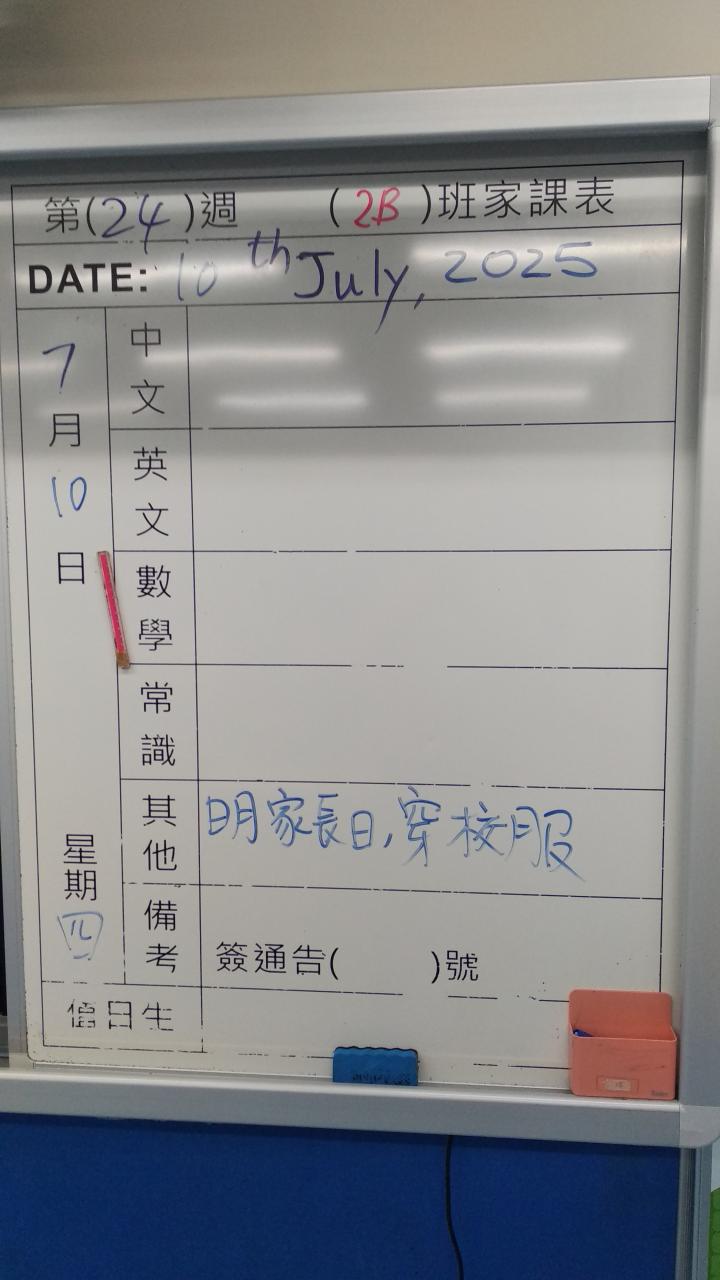 第(24)週 (2B)班家課表
DATE: 10th July, 2025
7月10日
星期四
中文
英文
數學
常識
其他 明家長日,穿校服
備考 簽通告( )號
值日生